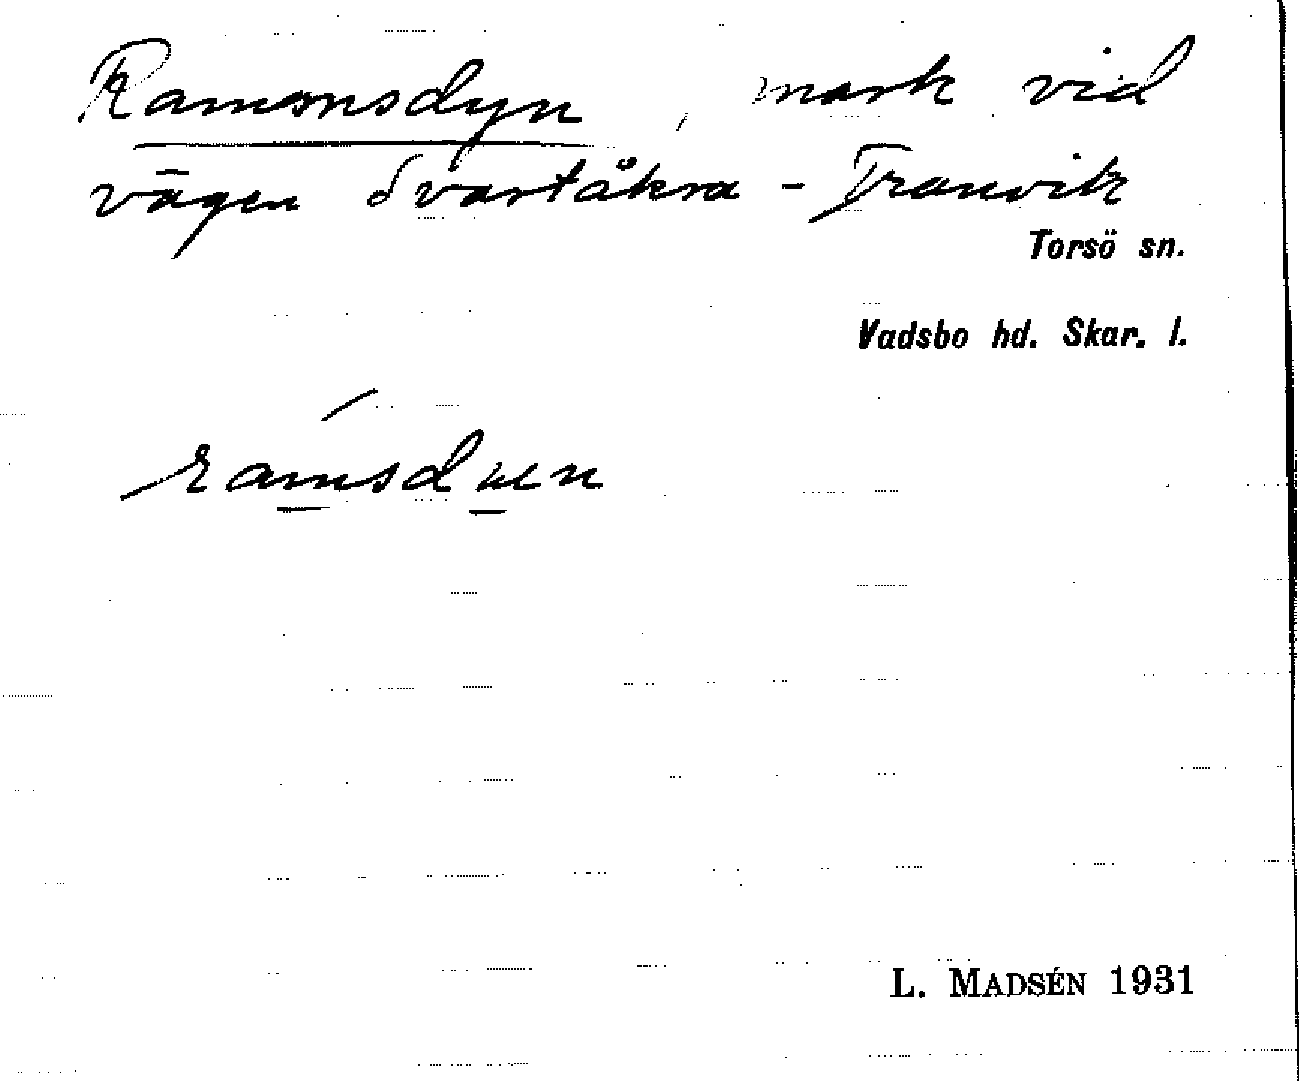 Ramonsdyn, mark vid
vägen Svartåkra - Tranvik
Torsö sn.
Vadsbo hd. Skar. l.
L. MADSÉN 1931